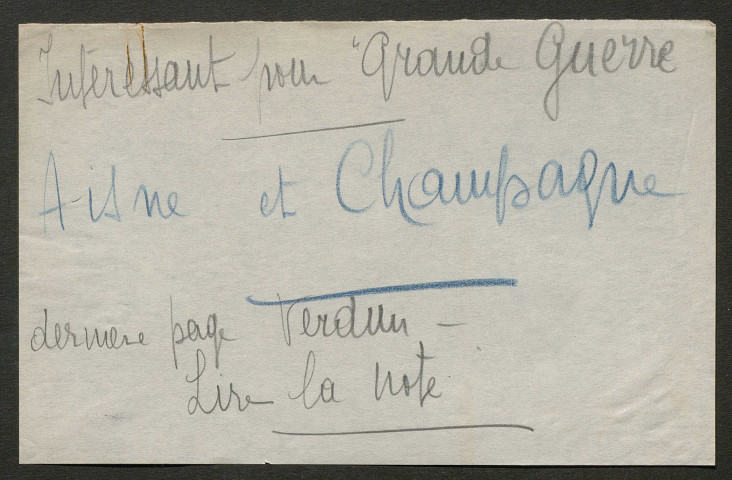 Intéressant pour "Grande Guerre
Aisne et Champagne
dernière page Verdun -
Lire la note